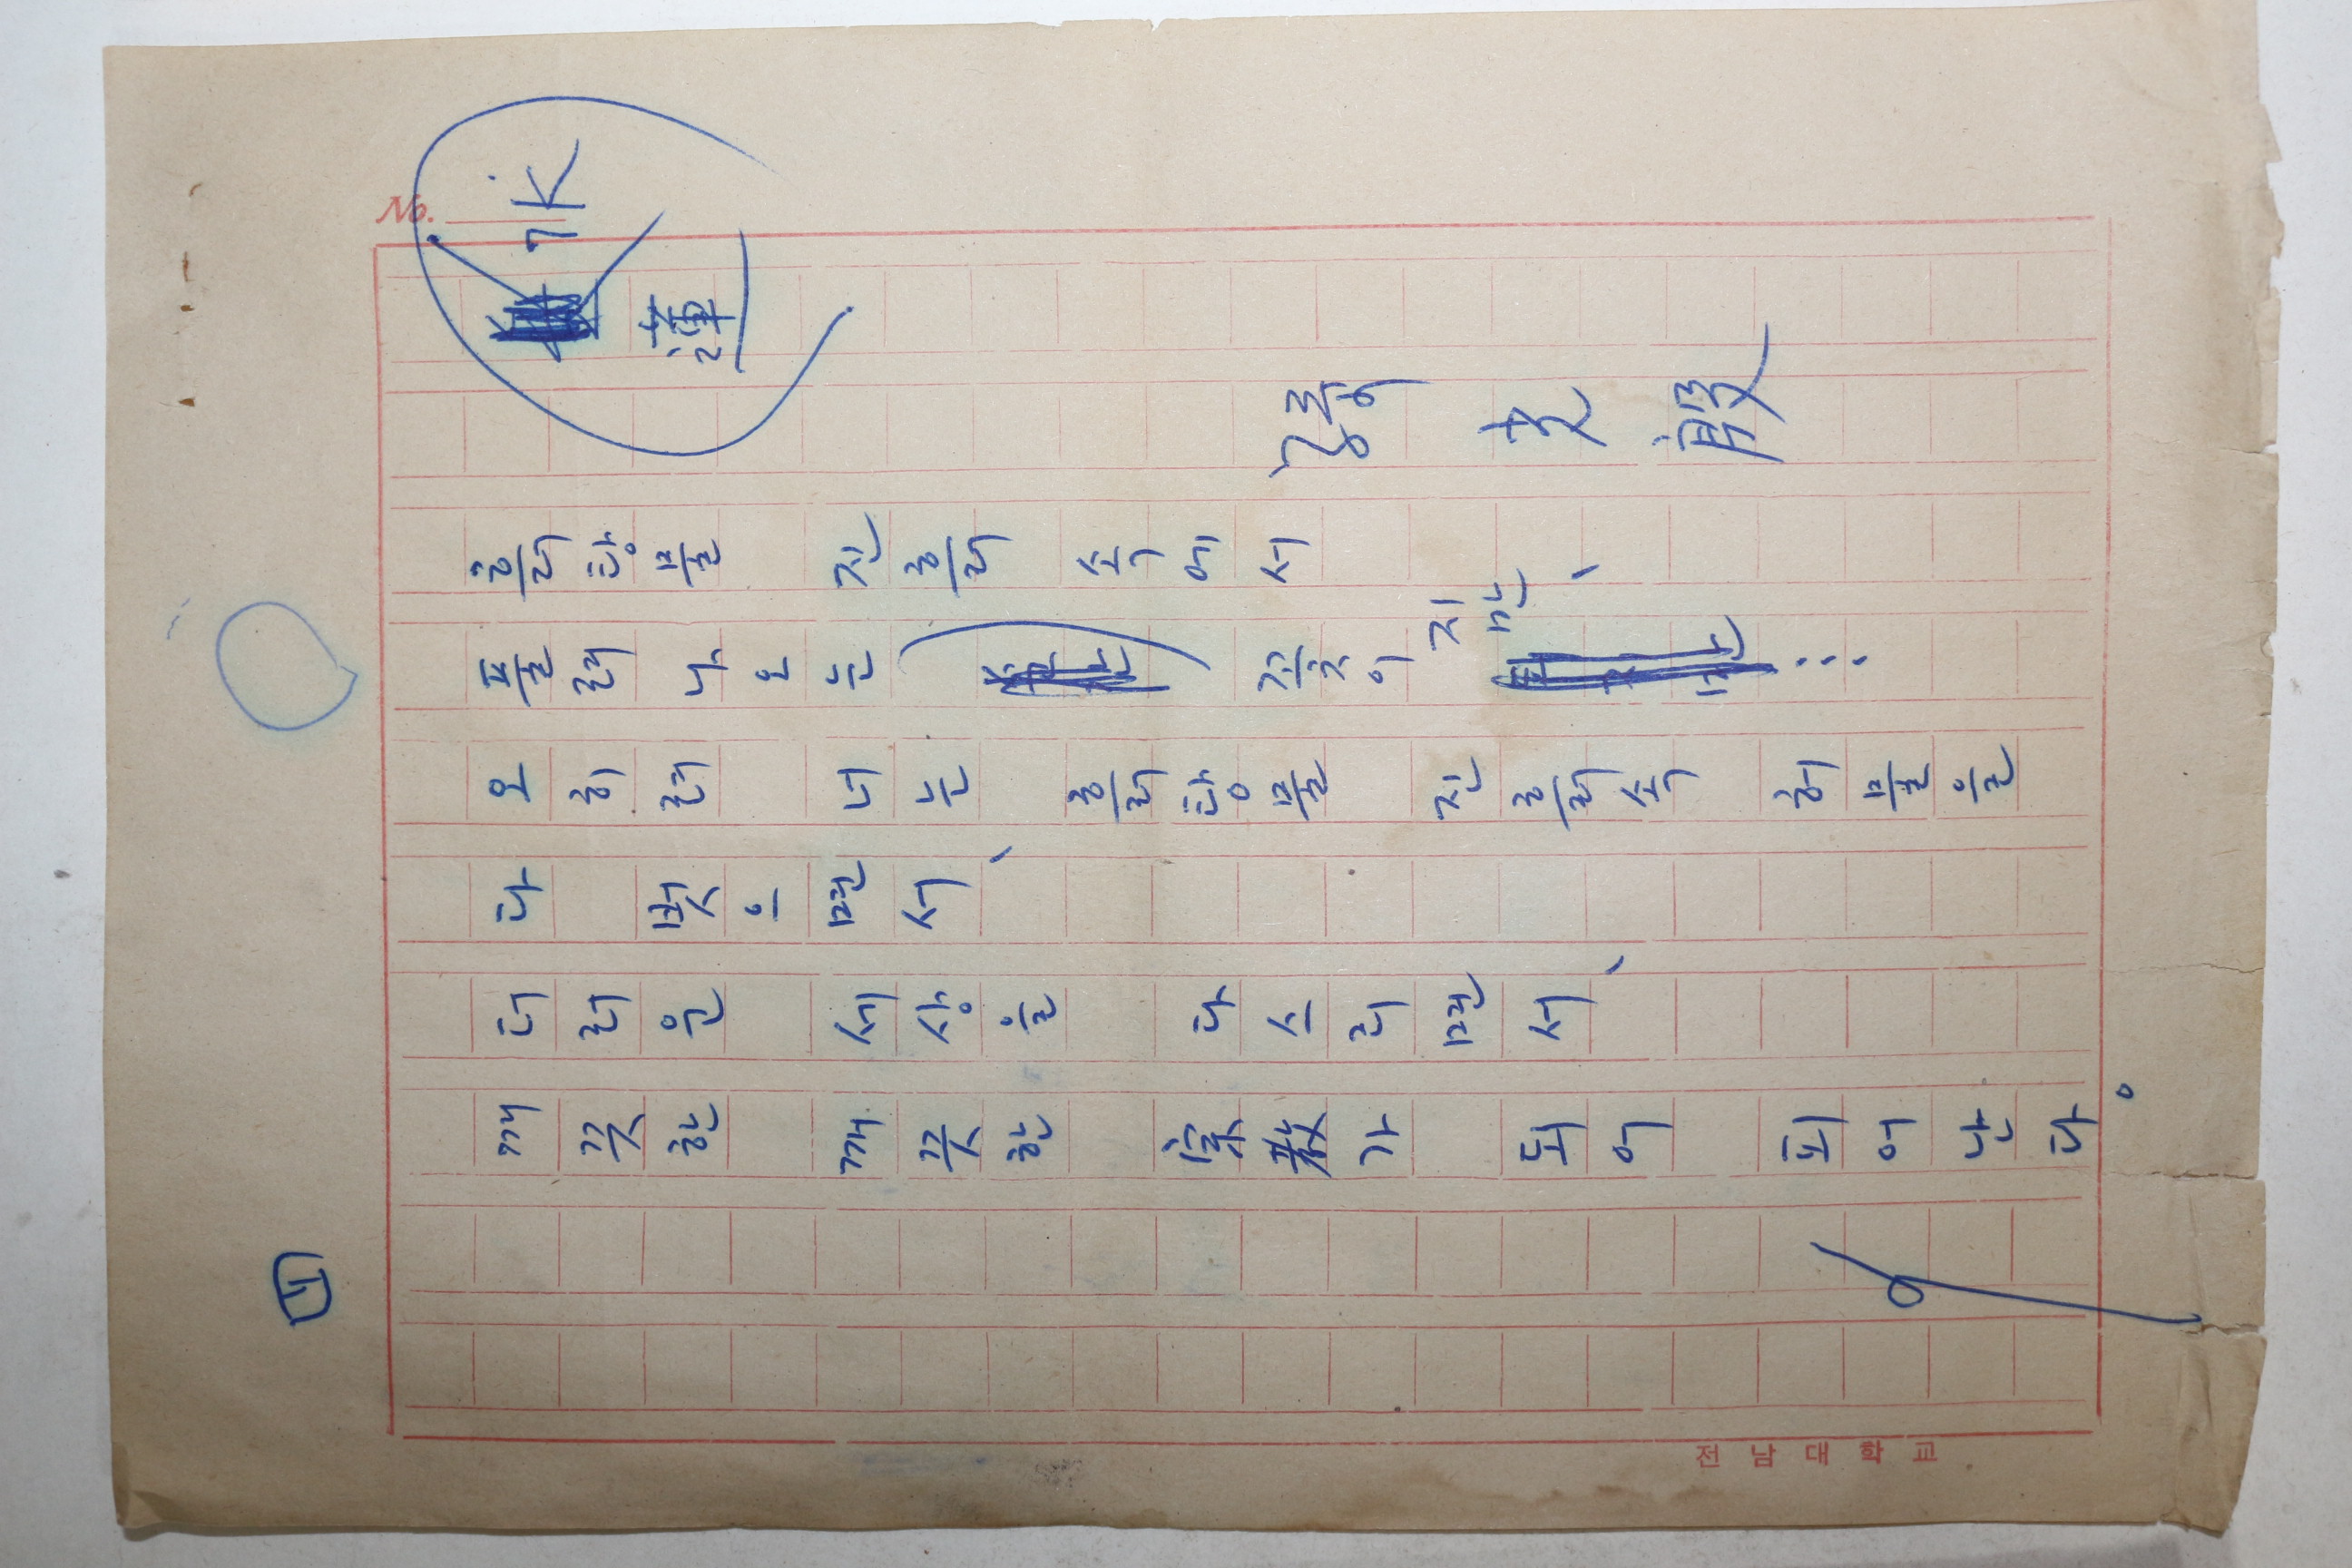 No.
水蓮
孫光殷
흙탕물 진흙 속에서
풀려 나오는 꽃이지만、…
오히려 너는 흙탕물 진흙속 허물을
다 벗으면서、
더러운 세상을 다스리면서、
깨끗한 깨끗한 宗教가 되어 피어난다。
전남대학교